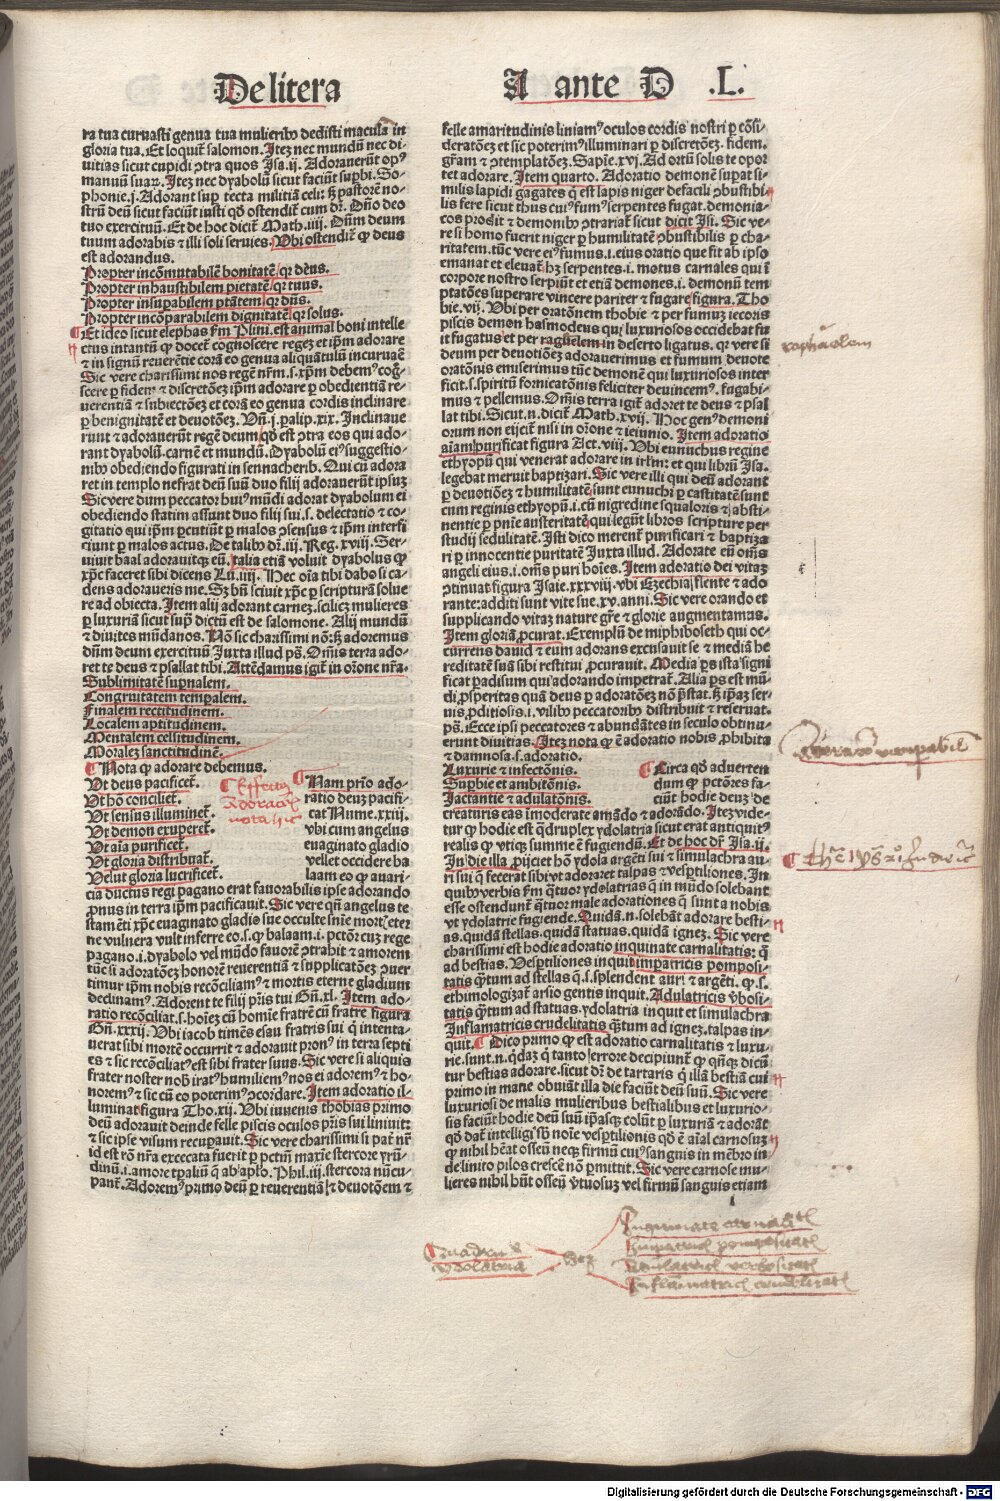 De litera A ante D .L.
ra tua curuasti genua tua mulieribꝰ dedisti maculā in
gloria tua. Et loquit̄ salomon. Itez nec mundū nec di-
uitias sicut cupidi ↄtra quos Isa. ij. Adorauerūt opꝰ
manuū suaꝝ. Itez nec dyabolū sicut faciūt supbi. So-
phonie. j. Adorant sup tecta militiā celi: sꝫ pastorē no-
strū deū sicut faciūt iusti qd̄ ostendit̄ cum dr̄. Dn̄o deo
tuo exercituū. Et de hoc dicit̄ Math. iiij. Dn̄m deum
tuum adorabis ⁊ illi soli seruies. Ubi ostendit̄ ꝙ deus
est adorandus.
Propter incōmutabilē bonitatē / qꝛ deus.
Propter inhaustibilem pietatē / qꝛ tuus.
Propter insupabilem ptātem / qꝛ dn̄s.
Propter incōparabilem dignitatē qꝛ solus.
Et ideo sicut elephas fm Plini. est animal boni intelle
ctus intantū ꝙ docet̄ cognoscere regez et ip̄m adorare
⁊ in signū reuerētie corā eo genua aliquātulū incuruāt̄
Sic vere charissimi nos regē nr̄m .s. xp̄m debemꝰ coḡ-
scere ꝑ fidem ⁊ discretōez ip̄m adorare ꝑ obedientiā re-
uerentiā ⁊ subiectōez et corā eo genua cordis inclinare
ꝑ benignitatē et deuotōez. Vn̄. j. palip. xix. Inclinaue
runt ⁊ adorauerūt regē deum qd̄ est ↄtra eos qui ado-
rant dyabolū. carnē et mundū. Dyabolū eiꝰ suggestio-
nibꝰ obediendo figurati in sennacherib. Qui cū adora
ret in templo nefrat deū suū duo filij adorauerūt ipsuz
Sic vere dum peccator huiꝰ mūdi adorat dyabolum ei
obediendo statim assunt duo filij sui .s. delectatio ⁊ co-
gitatio qui ip̄m ꝑcutiūt ꝑ malos ↄsensus ⁊ ip̄m interfi
ciunt ꝑ malos actus. De talibꝰ dr̄. iij. Reg. xviij. Ser-
uiuit baal adorauitqꝫ eū. talia etiā voluit dyabolus ꝙ
xp̄c faceret sibi dicens Lu. iiij. Hec oīa tibi dabo si ca-
dens adoraueris me. Sꝫ bn̄ sciuit xp̄c ꝑ scripturā solue
re ad obiecta. Item alij adorant carnez. scilicz mulieres
ꝑ luxuriā sicut supͣ dictū est de salomone. Alij mundū
⁊ diuites mūdanos. Nō sic charissimi nos: sꝫ adoremus
dūm deum exercituū Juxta illud pͣs. Om̄is terra ado-
ret te deus ⁊ psallat tibi. Attēdamus igit̄ in orōne nr̄a.
Sublimitatē supnalem.
Congruitatem tempalem.
Finalem rectitudinem.
Localem aptitudinem.
Mentalem cellitudinem.
Moralez sanctitudinē.
Nota ꝙ adorare debemus.
Vt deus pacificet̄.
Vt hō conciliet̄.
Vt sensus illuminet̄.
Vt demon exuperet̄.
Vt aīa purificet̄.
Vt gloria distribuat̄.
Velut gloria lucrificet̄.
Nam prīo ado-
ratio deuz pacifi-
cat Nume. xxiij.
vbi cum angelus
euaginato gladio
vellet occidere ba
laam eo ꝙ auari-
cia ductus regi pagano erat fauorabilis ipse adorando
ꝓnus in terra ip̄m pacificauit. Sic vere qn̄ angelus te
stamēti xp̄c euaginato gladio sue occulte snīe mort̄ eter
ne vulnera vult inferre eo .s. ꝙ balaam .i. pctōr cuz rege
pagano .i. dyabolo vel mūdo fauorē ↄtrahit ⁊ amorem
tūc si adoratōez honorē reuerentiā ⁊ supplicatōez ↄuer
timur ip̄m nobis recōciliamꝰ ⁊ mortis eterne gladium
declinamꝰ. Adorent te filij prīs tui Gn̄. xl. Item ado-
ratio recōciliat .s. hoīez cū homīe fratrē cū fratre figura
Gn̄. xxxij. Vbi iacob timēs esau fratris sui q̄ intenta-
uerat sibi mortē occurrit ⁊ adorauit pronꝰ in terra septi
es ⁊ sic recōciliatꝰ est sibi frater suus. Sic vere si aliquis
frater noster nob̄ iratꝰ humiliemꝰ nos ei adoremꝰ ⁊ ho-
noremꝰ ⁊ sic cū eo poterimꝰ ↄcordare. Item adoratio il-
luminat figura Tho. xij. Vbi iuuenis thobias primo
deū adorauit deinde felle piscis oculos prīs sui liniuit:
⁊ sic ipse visum recupauit. Sic vere charissimi si pat̄ nr̄
id est rō nr̄a excecata fuerit ꝑ pctm̄ maxīe stercore ꝟrū-
dinū .i. amore tꝑaliū q̄ ab aplo. Phil. iij. stercora nūcu-
pant̄. Adoremꝰ primo deū ꝑ reuerentiā ⁊ deuotōem ⁊
felle amaritudinis liniamꝰ oculos cordis nostri ꝑ cōsi-
deratōez et sic poterimꝰ illuminari ꝑ discretōez. fidem.
gr̄am ⁊ ↄtemplatōez. Sapīe. xvj. Ad ortū solis te opor
tet adorare. Item quarto. Adoratio demonē supat si-
milis lapidi gagates q̄ est lapis niger de facili ↄbustibi-
lis fere sicut thus cuiꝰ fumꝰ serpentes fugat. demonia-
cos prodit ⁊ demonibꝰ ↄtrariat̄ sicut dicit Isi. Sic ve-
re si homo fuerit niger ꝑ humilitatē ↄbustibilis ꝑ cha-
ritatem. tūc vere eiꝰ fumus .i. eius oratio que fit ab ipso
emanat et eleuat̄ hꝫ serpentes .i. motus carnales qui ī
corpore nostro serpiūt et etiā demones .i. demonū tem
ptatōes superare vincere pariter ⁊ fugare figura. Tho
bie. vij. Vbi per oratōnem thobie ⁊ per fumuz iecoris
piscis demon hasmodeus qui luxuriosos occidebat fu
it fugatus et per raguelem in deserto ligatus. qꝛ vere si
deum per deuotiōez adorauerimus et fumum deuote
oratōnis emiserimus tūc demonē qui luxuriosos inter
ficit .s. spiritū fornicatōnis feliciter deuincemꝰ. fugabi-
mus ⁊ pellemus. Om̄is terra igit̄ adoret te deus ⁊ psal
lat tibi. Sicut .n. dicit̄ Math. xvij. Hoc genꝰ demoni
orum non eijcit̄ nisi in orōne ⁊ ieiunio. Item adoratio
aīam purificat figura Act. viij. Vbi eunuchus regine
ethyopū qui venerat adorare in irlm: et qui librū Isa.
legebat meruit baptizari. Sic vere illi qui deū adorant
ꝑ deuotiōez ⁊ humilitatē sunt eunuchi ꝑ castitatē sunt
cum reginis ethyopū .i. cū nigredine squaloris ⁊ absti-
nentie ꝑ pnīe austeritatē qui legūt libros scripture per
studij sedulitatē. Isti dico merent̄ purificari ⁊ baptiza
ri ꝑ innocentie puritatē Juxta illud. Adorate eū om̄s
angeli eius .i. om̄s puri hoīes. Item adoratio dei vitaz
ↄtinuat figura Isaie. xxxviij. vbi Ezechia flente ⁊ ado
rante: additi sunt vite sue. xv. anni. Sic vere orando et
supplicando vitaz nature gr̄e ⁊ glorie augmentamus.
Item gloriā ꝓcurat. Exemplū de miphiboseth qui oc-
currens dauid ⁊ eum adorans excusauit se ⁊ mediā he
reditatē suā sibi restitui ꝓcurauit. Media pͣs ista signi
ficat paradisum qui adorando impetrat̄. Alia pͣs est mū-
di ꝓsperitas quā deus ꝑ adoratōez nō p̄stat. sꝫ ip̄az ser-
uis ꝓditiosis .i. vilibꝰ peccatoribꝰ distribuit ⁊ reseruat.
pͣs. Ecce ipsi peccatores ⁊ abundātes in seculo obtinu-
erunt diuitias. Itez nota ꝙ ē adoratio nobis ꝓhibita
⁊ damnosa .s. adoratio.
Luxurie ⁊ infectōnis.
Supbie et ambitōnis.
Jactantie ⁊ adulatōnis.
Circa qd̄ aduerten
dum ꝙ pctōres fa-
ciūt hodie deuz de
creaturis eas īmoderate amādo ⁊ adorādo. Itez vide-
tur ꝙ hodie est q̄druplex ydolatria sicut erat antiquitꝰ
realis ꝙ vtiqꝫ summe ē fugiendū. Et de hoc dr̄ Isa. ij.
In die illa ꝓijciet hō ydola argēti sui ⁊ simulachra au-
ri sui q̄ fecerat sibi vt adoraret talpas ⁊ vespertiliones. In
quibꝰ verbis fm q̄tuor ydolatrias q̄ in mūdo solebant
esse ostendunt̄ q̄tuor male adorationes q̄ sunt a nobis
vt ydolatrie fugiende. Quidā .n. solebāt adorare besti-
as. quidā stellas. quidā statuas. quidā ignez. Sic vere
charissimi est hodie adoratio inquinate carnalitatis: q̄
ad bestias. Vespertiliones inquit impatricis pomposi-
tatis q̄tum ad stellas q̄ .s. splendent aurī ⁊ argēti. ꝙ .s.
ethimologizat̄ arsio gentis inquit. Adulatricis ꝟbosi-
tatis q̄tum ad statuas. ydolatria inquit et simulachra
Inflamatricis crudelitatis q̄tum ad ignez. talpas in-
quit. Dico primo ꝙ est adoratio carnalitatis ⁊ luxu-
rie. sunt .n. q̄daz q̄ tanto errore decipiunt̄ ꝙ qn̄qꝫ dicū
tur bestias adorare. sicut dr̄ de tartaris q̄ illā bestiā cui
primo in mane obuiāt illa die faciūt deū suū. Sic vere
luxuriosi de malis mulieribus bestialibus et luxurio-
sis faciūt hodie deū suū ip̄asqꝫ colūt ꝑ luxuriā ⁊ adorāt
qd̄ dat̄ intelligi sb̄ noīe vespertilionis qd̄ ē aīal carnosuz
ꝙ nihil hēat osseū neqꝫ firmū cuiꝰ sanguis in mēbro in-
de linito pilos crescē nō ꝑmittit. Sic vere carnose mu-
lieres nihil hūt osseū ꝟtuosuz vel firmū sanguis etiam
Effectꝰ
Adoracōis
nota hic
raphaelem
Quadru
ydolatria
Inquinate carnalitatis
Impatricis pompositatis
Adulatricis verbositatis
Inflāmatricis crudelitatis
Digitalisierung gefördert durch die Deutsche Forschungsgemeinschaft - DFG